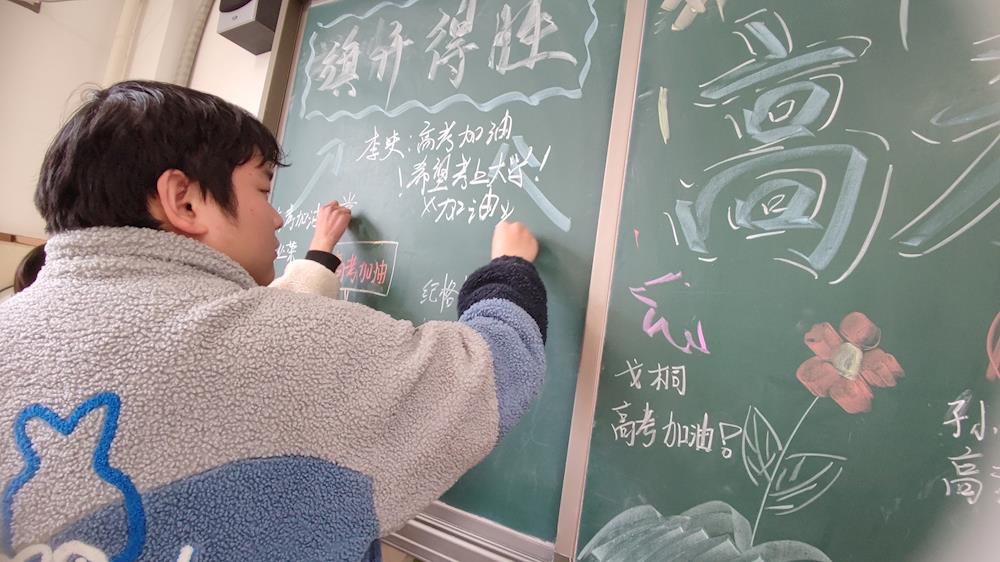 旗开得胜
李史:高考加油
!希望考上大学!
加油
考加油
高考加油
纪格
高
戈桐
高考加油!
孙
高考